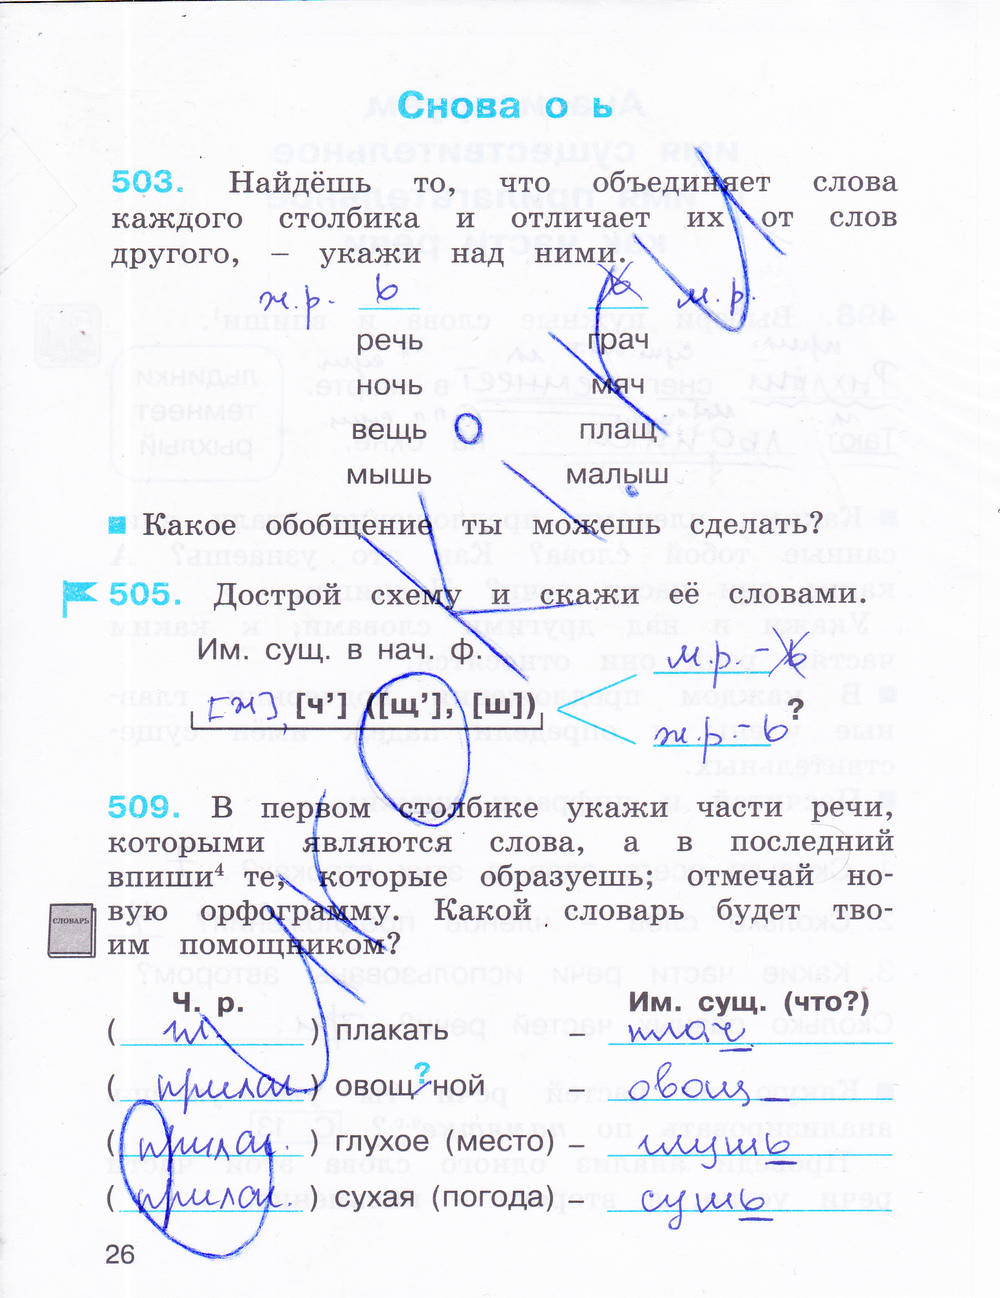 Снова о ь
503. Найдёшь то, что объединяет слова
каждого столбика и отличает их от слов
другого, – укажи над ними.
ж.р. ь ь м.р.
речь грач
ночь мяч
вещь плащ
мышь малыш
Какое обобщение ты можешь сделать?
505. Дострой схему и скажи её словами.
Им. сущ. в нач. ф.
м.р. - ь
[ж], [ч'] ([щ'], [ш]) ?
ж р - ь
509. В первом столбике укажи части речи,
которыми являются слова, а в последний
впиши⁴ те, которые образуешь; отмечай но-
вую орфограмму. Какой словарь будет тво-
СЛОВАРЬ
им помощником?
Ч. р. Им. сущ. (что?)
( гл. ) плакать – плач
( прилаг. ) овощ?ной – овощ
( прилаг. ) глухое (место) – глушь
( прилаг. ) сухая (погода) – сушь
26